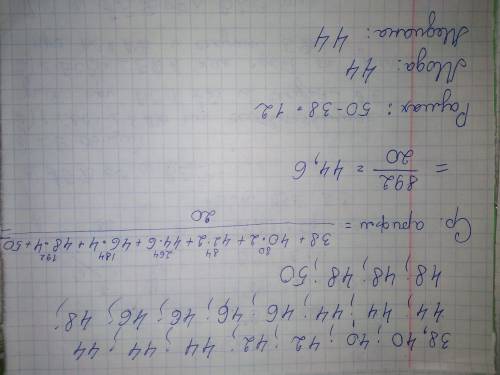 38, 40 ; 40 ; 42 ; 42 ; 44 ; 44 ; 44
44 ; 44 ; 44 ; 46 ; 46 ; 46 ; 46 ; 48 ;
48 ; 48 ; 48 ; 50
Ср. арифм = 38 + 40·2 + 42·2 + 44·6 + 46·4 + 48·4 + 50
80 84 264 184 192
20
= 892/20 = 44,6
Размах : 50 - 38 = 12
Мода: 44
Медиана: 44